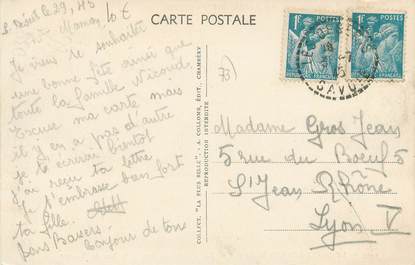 CARTE POSTALE
Maman
Je viens te souhaiter
une bonne fête ainsi que
toute la famille
Excuse ma carte mais
il y en a pas d'autre
je t'écrirai bientôt
j'ai reçu ta lettre
Je t'embrasse bien fort
ta fille.
bons Baisers
Bonjour de ton
COLLECT. "LA PLUS BELLE" - A. COLLOMB, ÉDIT., CHAMBÉRY
REPRODUCTION INTERDITE
73)
1F
POSTES
1F
POSTES
SAVOIE
Madame Gros Jean
5 rue du Boeuf 5
St Jean Rhône
Lyon V